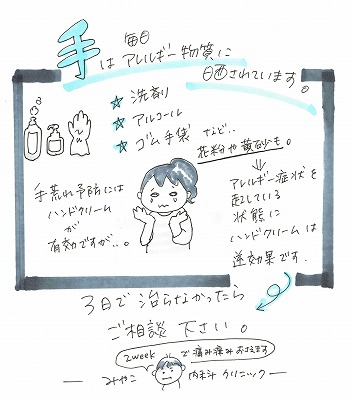 手は毎日アレルギー物質に
日晒されています。
☆ 洗剤
☆ アルコール
☆ ゴム手袋 など..
花粉や黄砂も。
手荒れ予防には
ハンドクリーム
が
有効ですが..。
アレルギー症状を
起している
状態に
ハンドクリームは
逆効果です.
3日で治らなかったら
ご相談下さい。
2weekで痛み痒みおさえます
みやこ内科クリニック